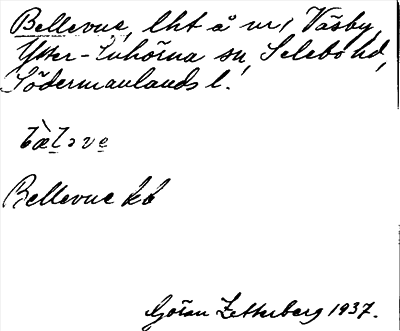 Bellevue, lht å nr 1 Väsby,
Ytter-Enhörna sn, Selebo hd,
Södermanlands l.
bæ̀l̠əve̠
Bellevue kb
Göran Zetterberg 1937.